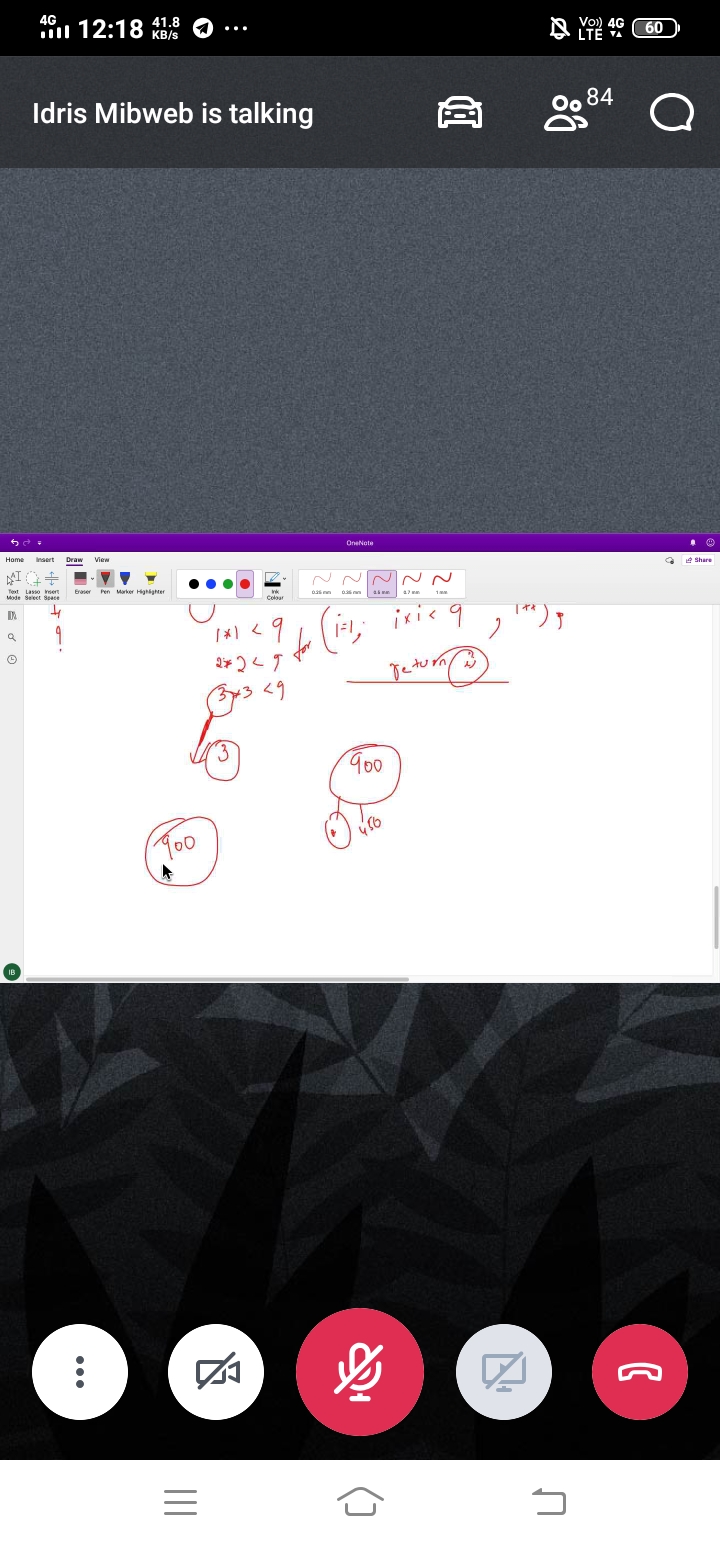 4G 12:18 41.8 KB/s ... Vo) LTE 4G 60
Idris Mibweb is talking 84
OneNote
Home Insert Draw View Share
Text Mode Lasso Select Insert Space Eraser Pen Marker Highlighter Ink Colour 0.25 mm 0.35 mm 0.5 mm 0.7 mm 1 mm
1*1 < 9 for (i=1; i*i < 9 , i++) ;
2*2 < 9 return
3*3 < 9
3
900
450
900
IB